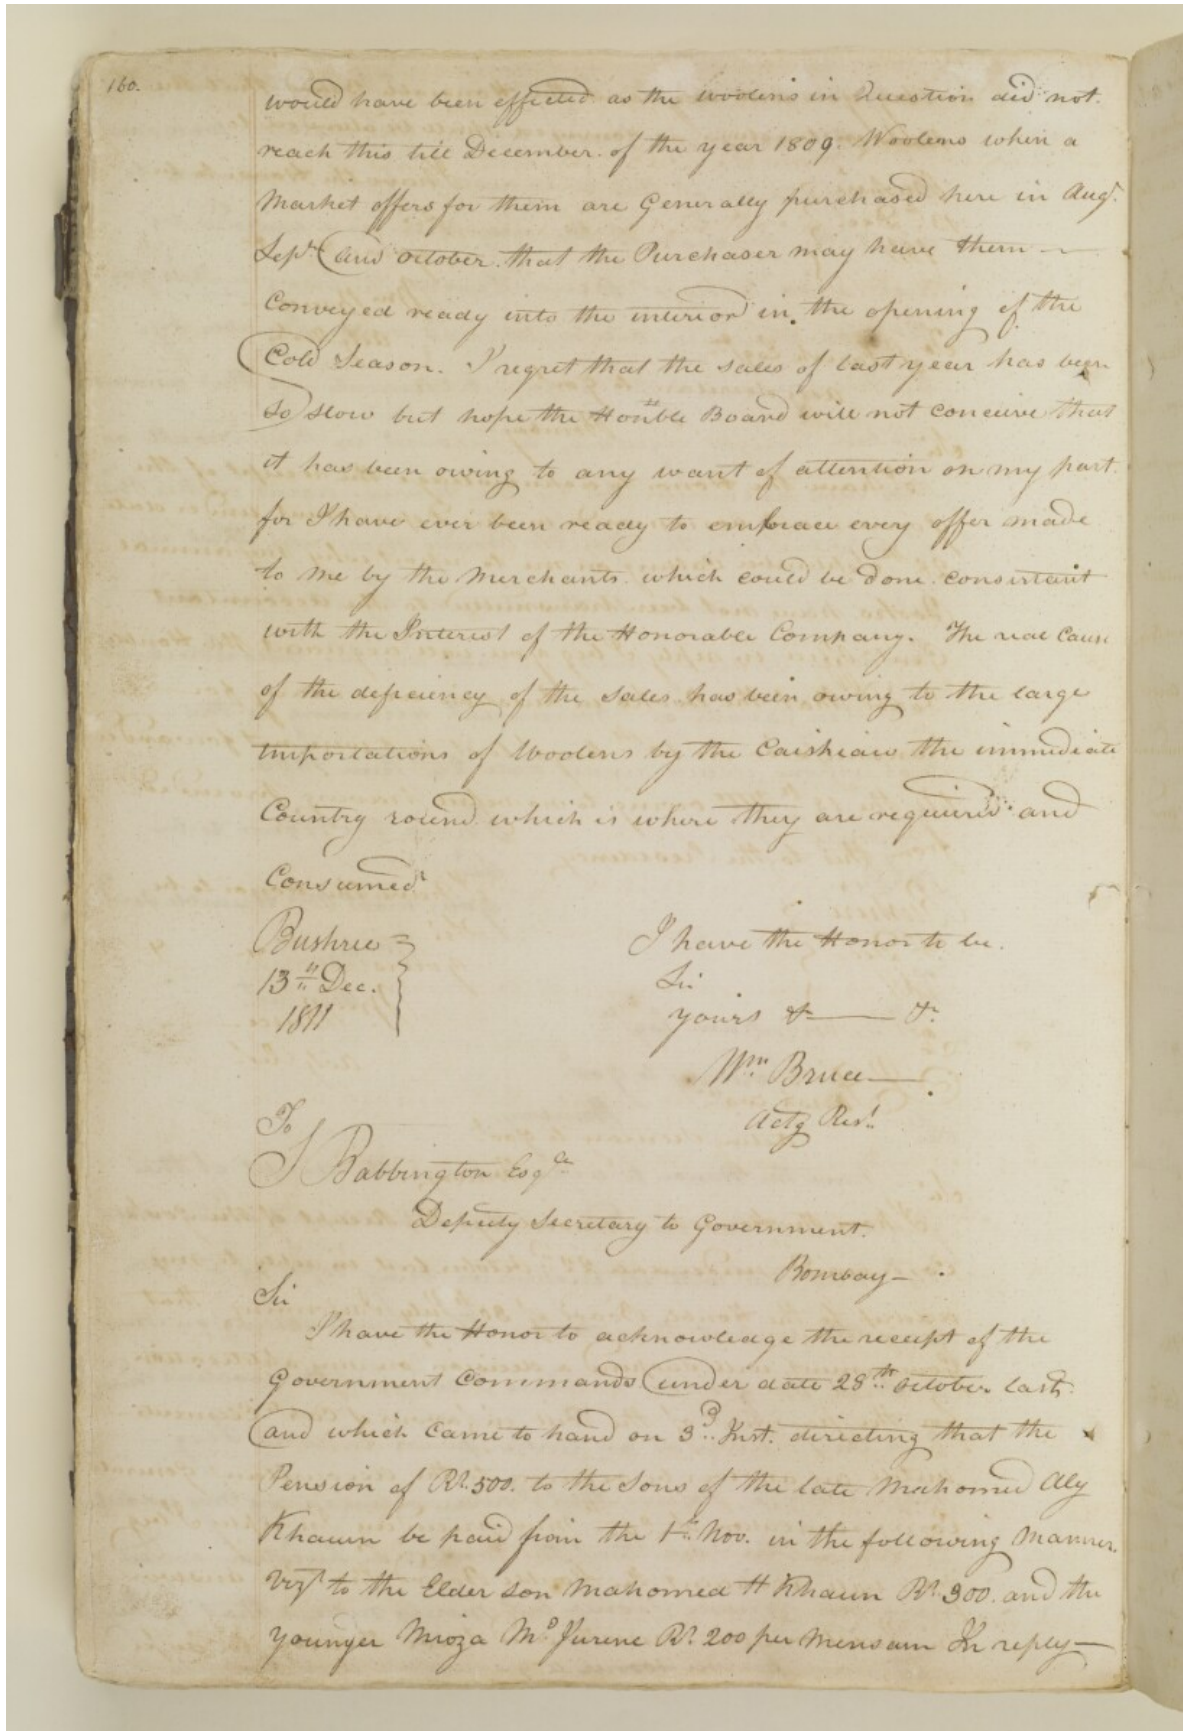 160.
would have been effected as the woolens in Question did not
reach this till December of the year 1809. Woolens when a
Market offers for them are Generally purchased here in Augt.
Sept. and October that the Purchaser may have them —
Conveyed ready into the interior in the opening of the
Cold Season. I regret that the sales of last year has been
so slow but hope the Honble Board will not conceive that
it has been owing to any want of attention on my part
for I have ever been ready to embrace every offer made
to me by the Merchants which could be done consistant
with the Interest of the Honorable Company. The real Cause
of the deficiency of the sales has been owing to the large
importations of Woolens by the the immediate
Country round which is where they are required and
Consumed
Bushree
13th Dec.
1811
I have the Honor to be.
Sir
yours &c —— &c.
Wm. Bruce —
Actg Rest.
To
J Babbington Esqr.
Deputy Secretary to Government.
Bombay —
Sir
I have the Honor to acknowledge the receipt of the
Government Commands under date 28th October last
and which Came to hand on 3d. Inst. directing that the
Pension of Rs. 500. to the Sons of the late Mahomed Aly
Khaun be paid from the 1st. Nov. in the following Manner.
Vizt to the Elder son Mahomed H Khaun Rs. 300. and the
younger Mirza Md. Rs. 200 per Mensum In reply —